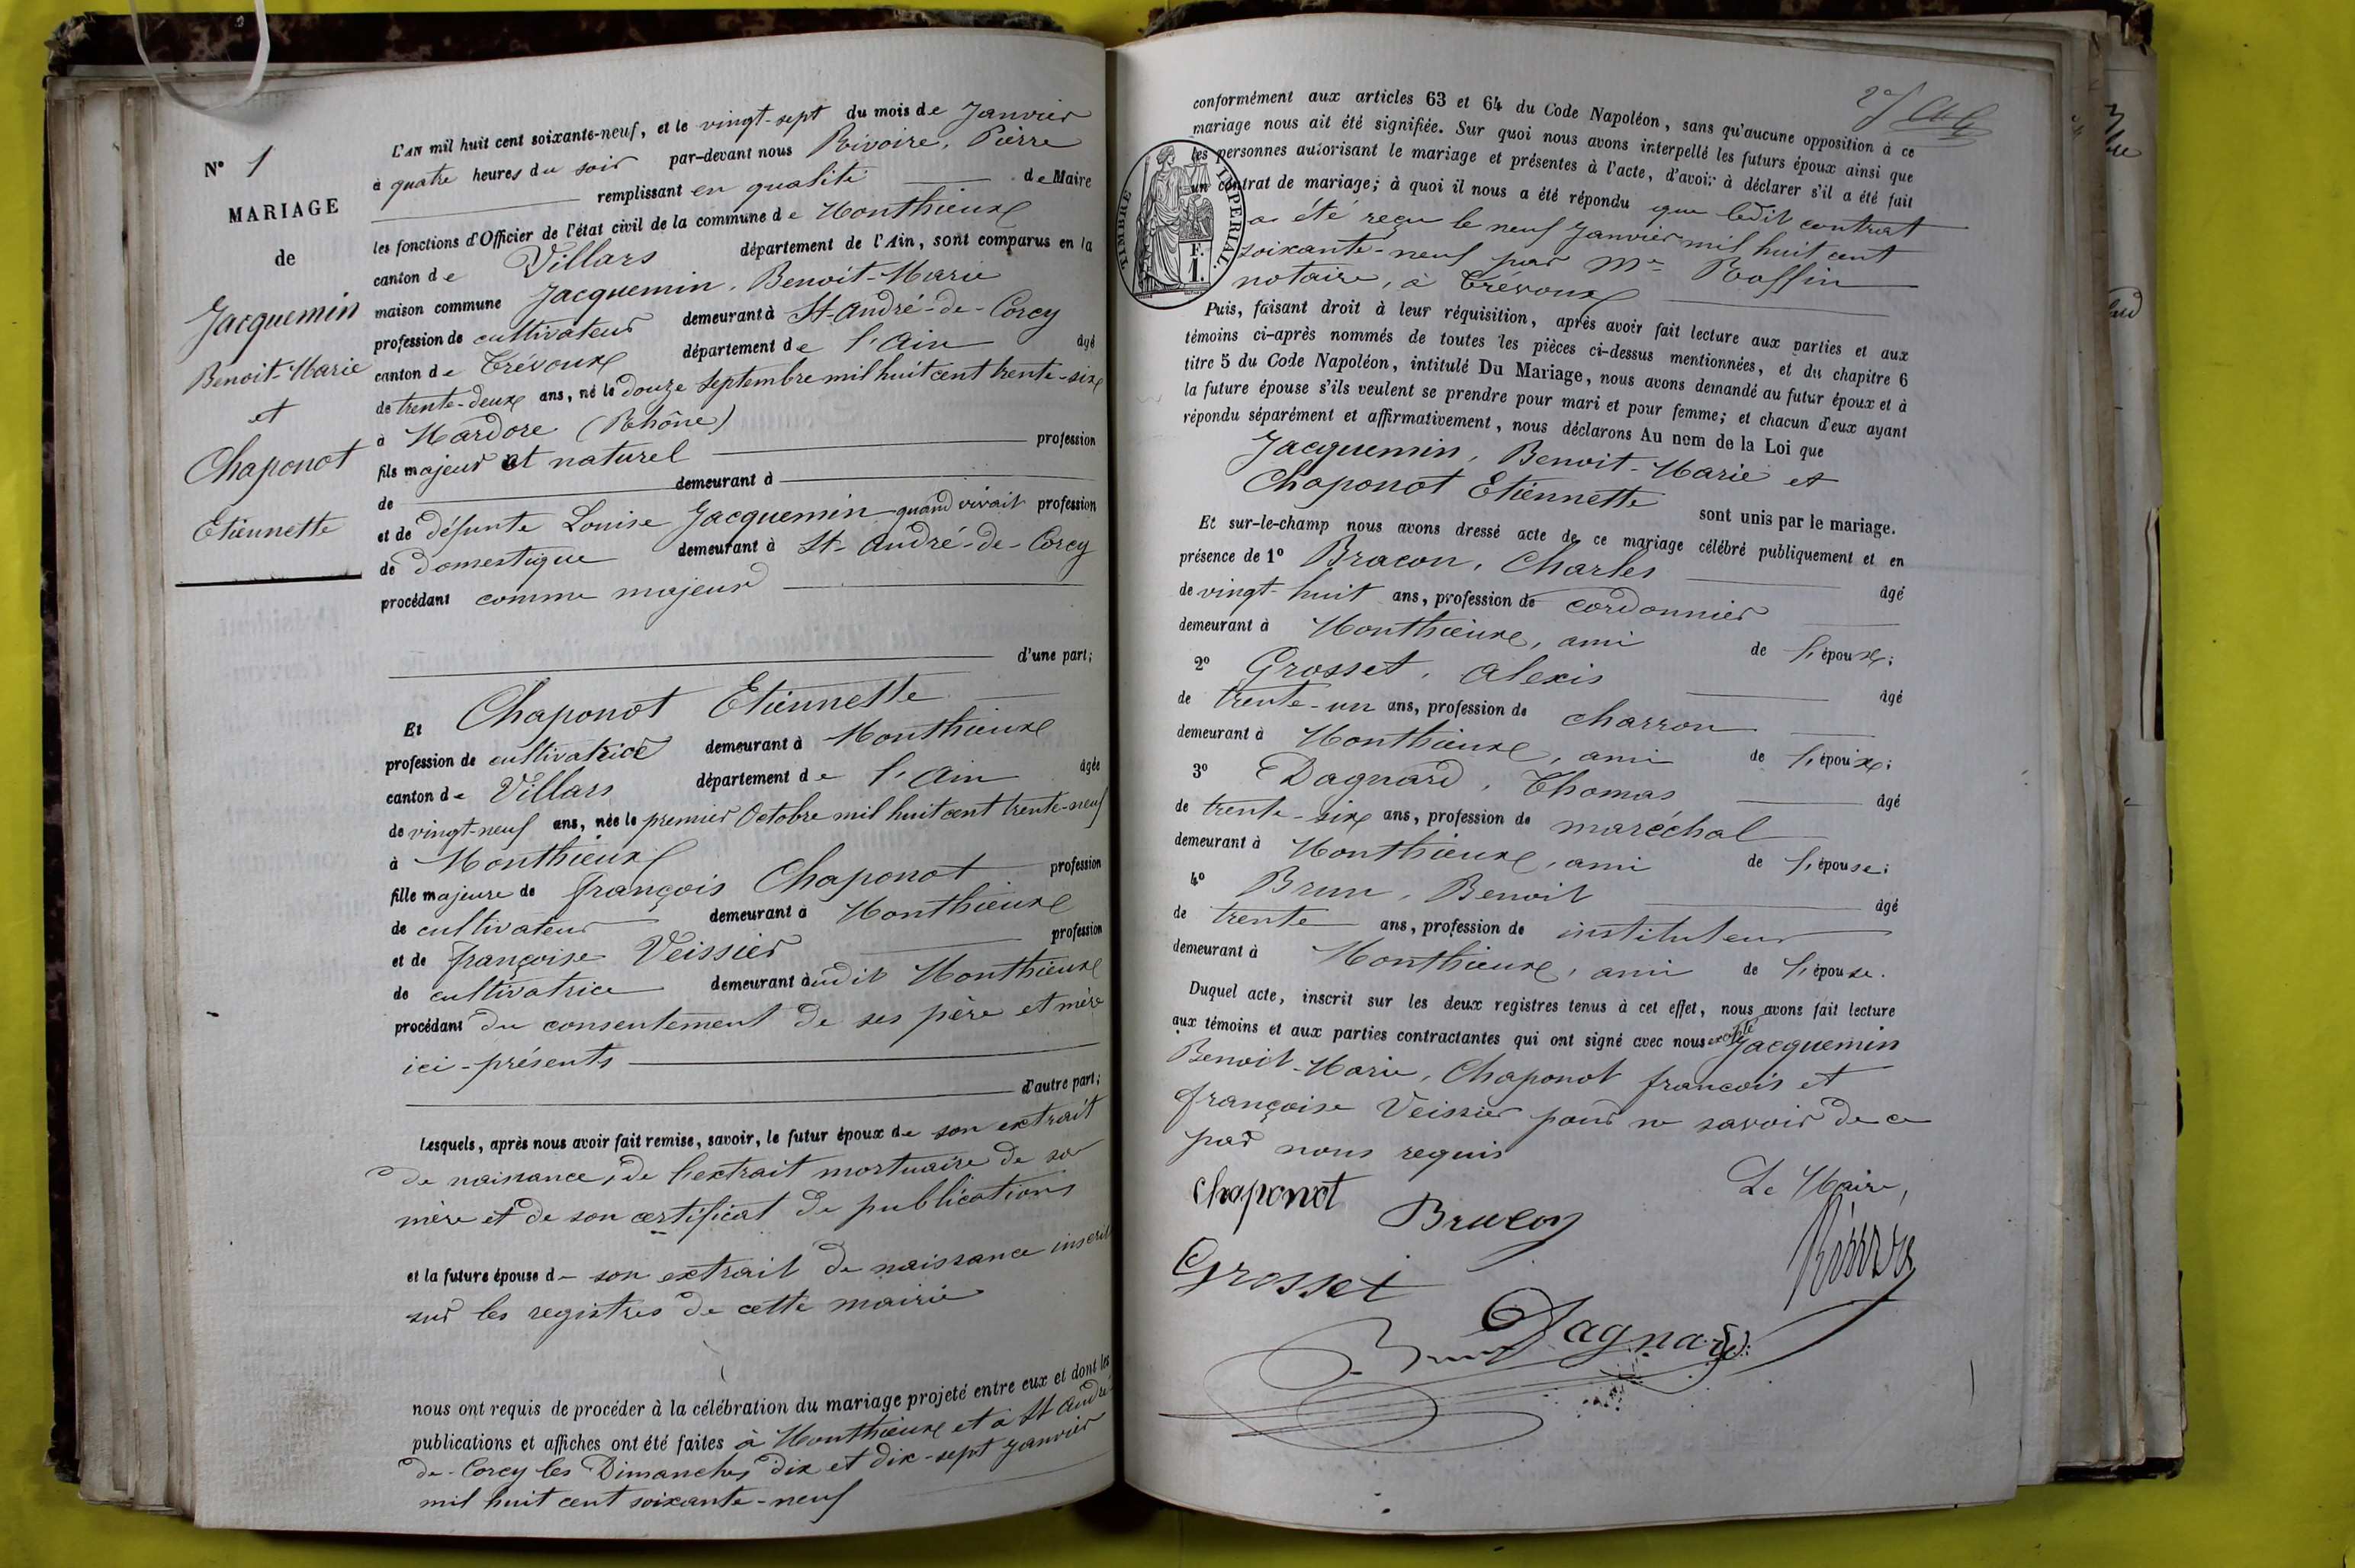 N° 1
MARIAGE
de
Jacquemin
Benoit-Marie
et
Chaponot
Etiennette
L'AN mil huit cent soixante-neuf, et le vingt-sept du mois de Janvier
à quatre heures du soir par-devant nous Rivoire, Pierre
remplissant en qualité de Maire
les fonctions d'Officier de l'état civil de la commune de Monthieux
canton de Villars département de l'Ain, sont comparus en la
maison commune Jacquemin, Benoit-Marie
profession de cultivateur demeurant à St-André-de-Corcy
canton de Trévoux département de l'Ain âgé
de trente-deux ans, né le douze Septembre mil huit cent trente-six
à Mardore (Rhône)
fils majeur et naturel profession
de demeurant à
et de défunte Louise Jacquemin quand vivait profession
de domestique demeurant à St-André-de-Corcy
procédant comme majeur
d'une part;
Et Chaponot Etiennette
profession de cultivatrice demeurant à Monthieux
canton de Villars département de l'Ain âgée
de vingt-neuf ans, née le premier Octobre mil huit cent trente-neuf
à Monthieux
fille majeure de françois Chaponot profession
de cultivateur demeurant à Monthieux
et de françoise Veissier profession
de cultivatrice demeurant audit Monthieux
procédant du consentement de ses père et mère
ici-présents
d'autre part;
Lesquels, après nous avoir fait remise, savoir, le futur époux de son extrait
de naissance, de l'extrait mortuaire de sa
mère et de son certificat de publications
et la future épouse de son extrait de naissance inscrit
sur les registres de cette mairie
nous ont requis de procéder à la célébration du mariage projeté entre eux et dont les
publications et affiches ont été faites à Monthieux et à St André
de-Corcy les Dimanches dix et dix-sept Janvier
mil huit cent soixante-neuf
conformément aux articles 63 et 64 du Code Napoléon, sans qu'aucune opposition à ce
mariage nous ait été signifiée. Sur quoi nous avons interpellé les futurs époux ainsi que
les personnes autorisant le mariage et présentes à l'acte, d'avoir à déclarer s'il a été fait
un contrat de mariage; à quoi il nous a été répondu que ledit contrat
a été reçu le neuf Janvier mil huit cent
soixante-neuf par Me Roffin
notaire, à Trévoux
TIMBRE IMPERIAL
F.
1.
Puis, faisant droit à leur réquisition, après avoir fait lecture aux parties et aux
témoins ci-après nommés de toutes les pièces ci-dessus mentionnées, et du chapitre 6
titre 5 du Code Napoléon, intitulé Du Mariage, nous avons demandé au futur époux et à
la future épouse s'ils veulent se prendre pour mari et pour femme; et chacun d'eux ayant
répondu séparément et affirmativement, nous déclarons Au nom de la Loi que
Jacquemin, Benoit-Marie et
Chaponot Etiennette sont unis par le mariage.
Et sur-le-champ nous avons dressé acte de ce mariage célébré publiquement et en
présence de 1° Bracon, Charles âgé
de vingt-huit ans, profession de cordonnier
demeurant à Monthieux, ami de l'époux;
2° Grosset, Alexis âgé
de trente-un ans, profession de charron
demeurant à Monthieux, ami de l'époux;
3° Dagnard, Thomas âgé
de trente-six ans, profession de maréchal
demeurant à Monthieux, ami de l'épouse;
4° Brun, Benoit âgé
de trente ans, profession de instituteur
demeurant à Monthieux, ami de l'épouse.
Duquel acte, inscrit sur les deux registres tenus à cet effet, nous avons fait lecture
aux témoins et aux parties contractantes qui ont signé avec nous excepté Jacquemin
Benoit-Marie, Chaponot francois et
françoise Veissier pour ne savoir de ce
par nous requis
Le Maire,
chaponot Bracon
Rivoire
Grosset
Dagnard
Brun